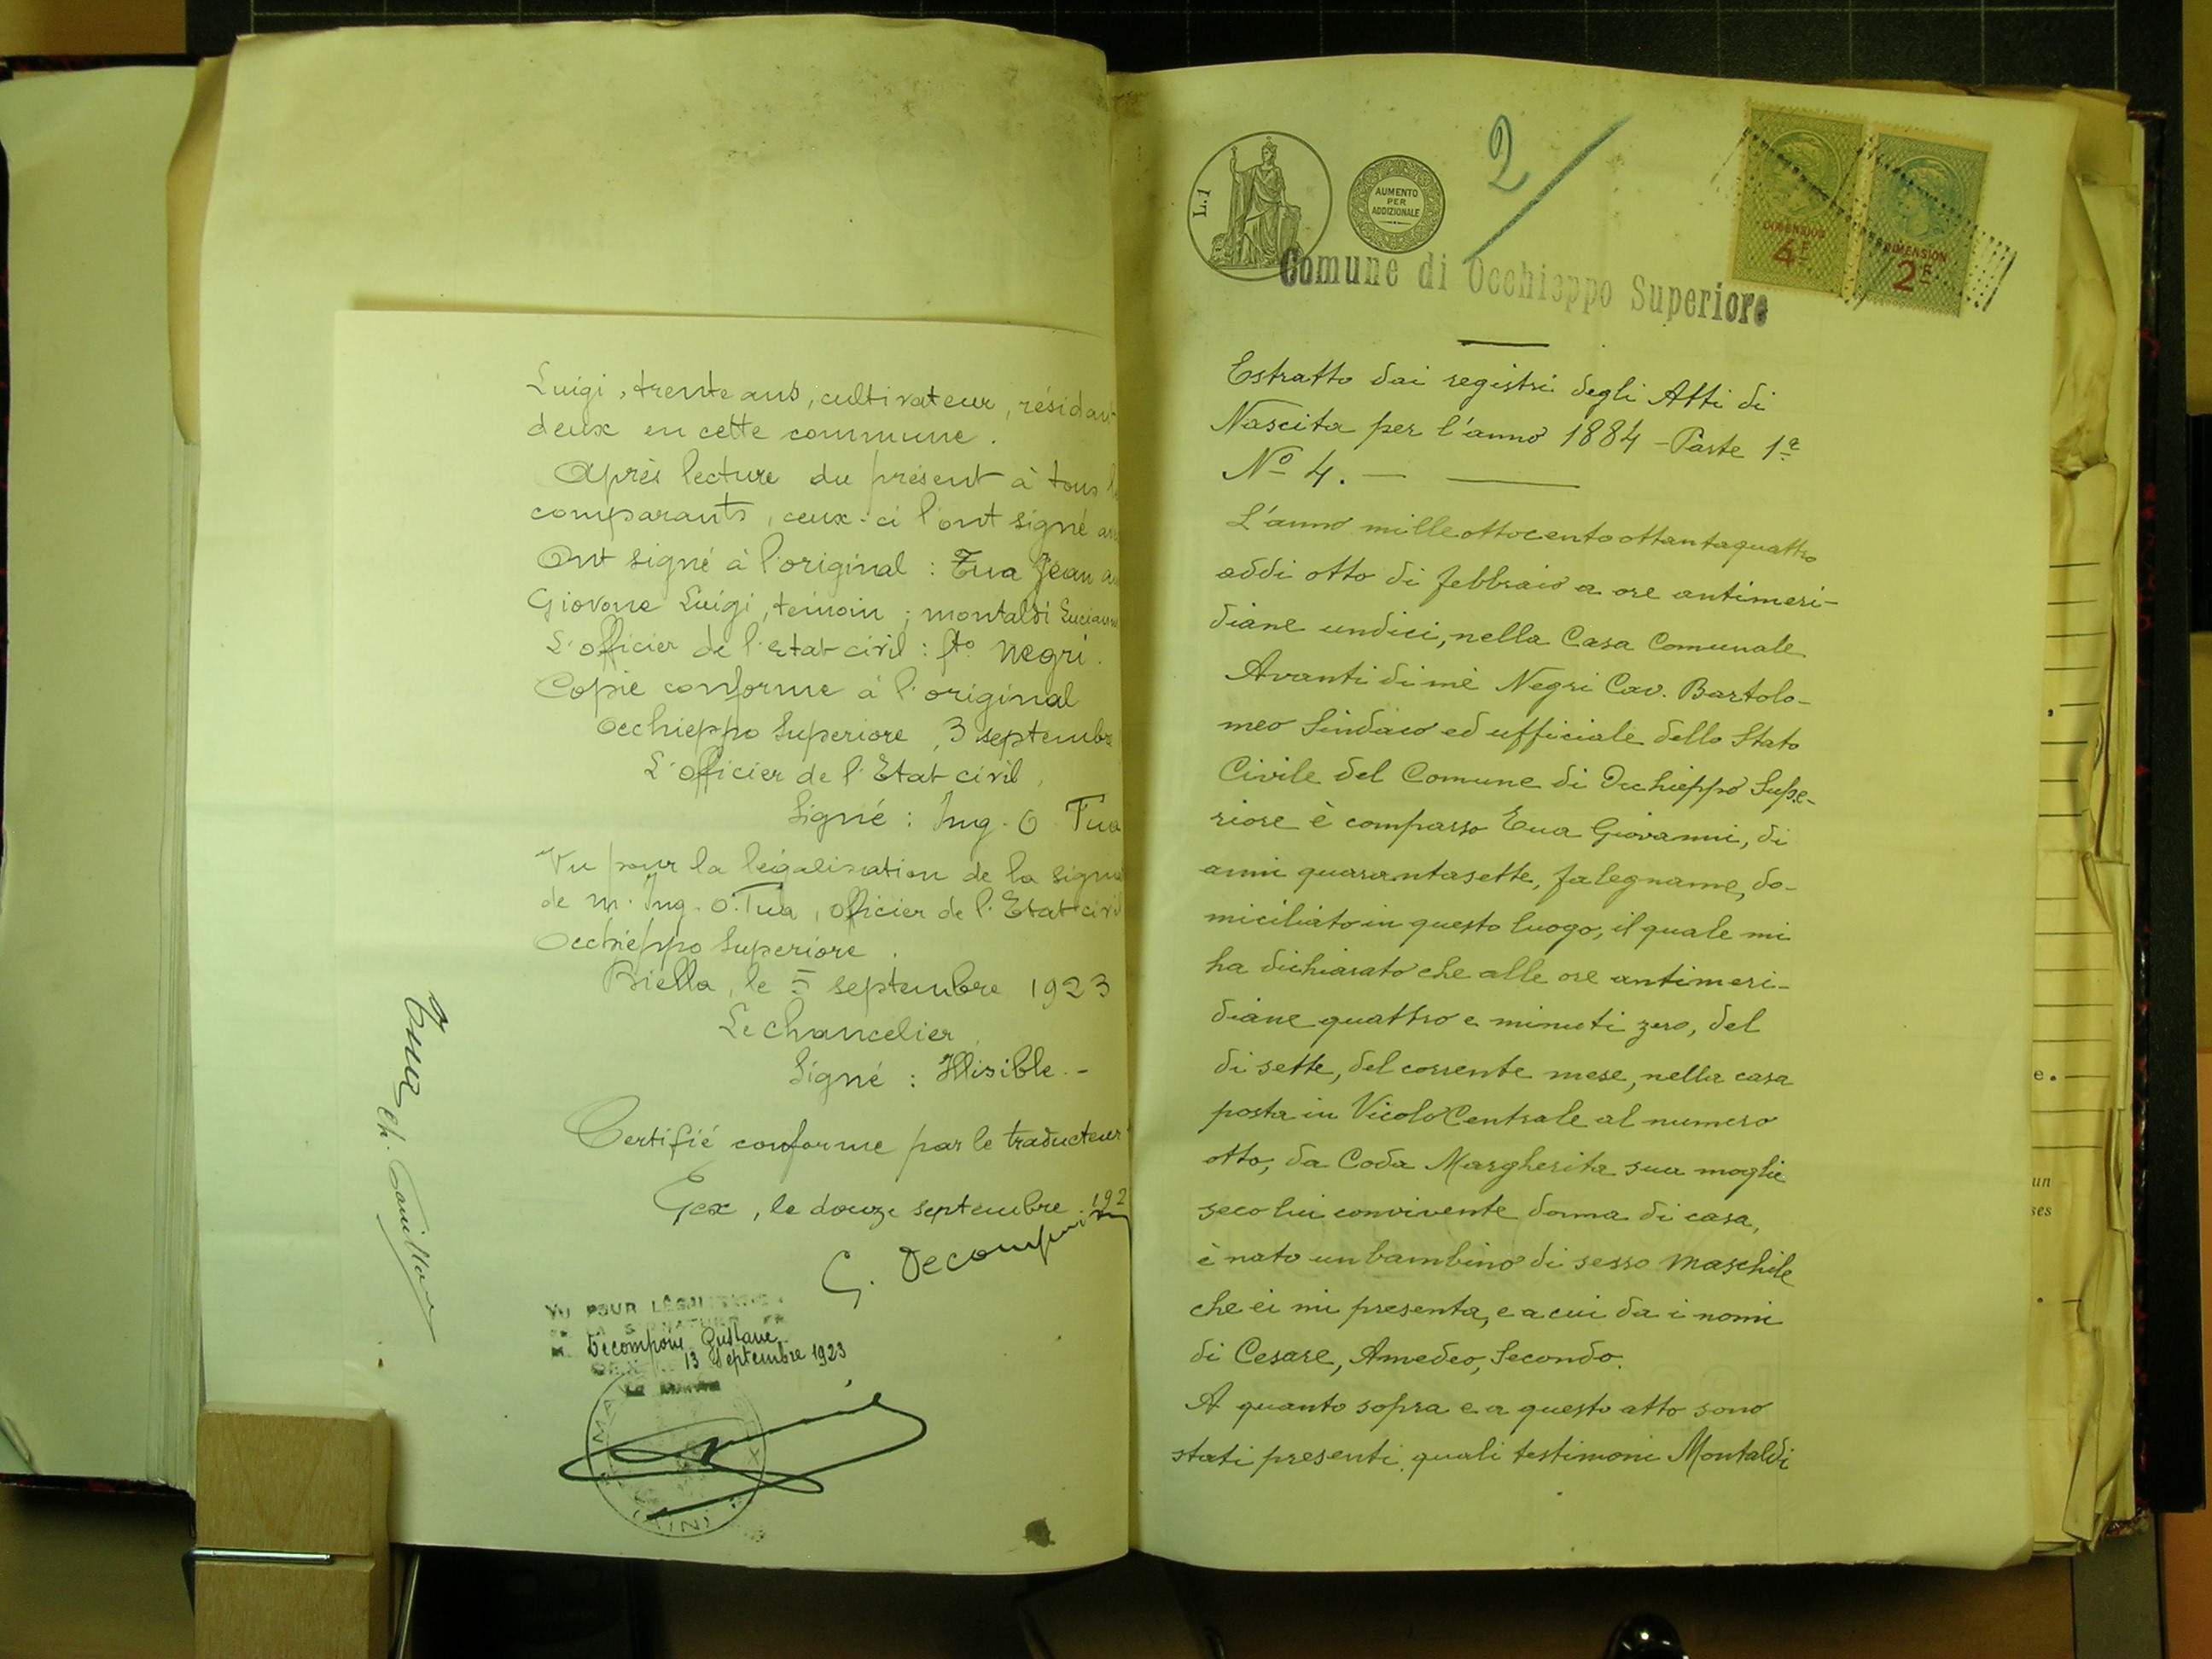 Luigi, trente ans, cultivateur, résidant
deux en cette commune.
Après lecture du présent à tous
comparants, ceux-ci l'ont signé
Ont signé à l'original : Tua Jean
Giovone Luigi, témoin ; montaldi Lucien
L'officier de l'Etat civil : Negri.
Copie conforme à l'original
Occhieppo Superiore, 3 septembre
L'officier de l'Etat civil
Signé : Ing. O Tua
Vu pour la légalisation de la
de m. Ing. O. Tua, officier de l'Etat civil
Occhieppo Superiore.
Biella, le 5 septembre 1923
Le Chancelier
Signé : Illisible. -
Certifié conforme par le traducteur
Gex, le douze septembre 192
VU POUR LÉGALISATION
DE LA SIGNATURE DE
M. Gustave
GEX 13 Septembre 1923
LE MAIRE
L. 1
AUMENTO
PER
ADDIZIONALE
2
DIMENSION
4F
DIMENSION
2F
Comune di Occhieppo Superiore
Estratto dai registri degli Atti di
Nascita per l'anno 1884 - Parte 1ª
Nº 4. —
L'anno milleottocentoottantaquattro
addi otto di febbraio a ore antimeri-
diane undici, nella Casa Comunale
Avanti di me Negri Cav. Bartolo-
meo Sindaco ed ufficiale dello Stato
Civile del Comune di Occhieppo Supe-
riore è comparso Tua Giovanni, di
anni quarantasette, falegname, do-
miciliato in questo luogo, il quale mi
ha dichiarato che alle ore antimeri-
diane quattro e minuti zero, del
di sette, del corrente mese, nella casa
posta in Vicolo Centrale al numero
otto, da Coda Margherita sua moglie
seco lui convivente donna di casa,
è nato un bambino di sesso maschile
che ei mi presenta, e a cui da i nomi
di Cesare, Amedeo, Secondo.
A quanto sopra e a questo atto sono
stati presenti quali testimoni Montaldi